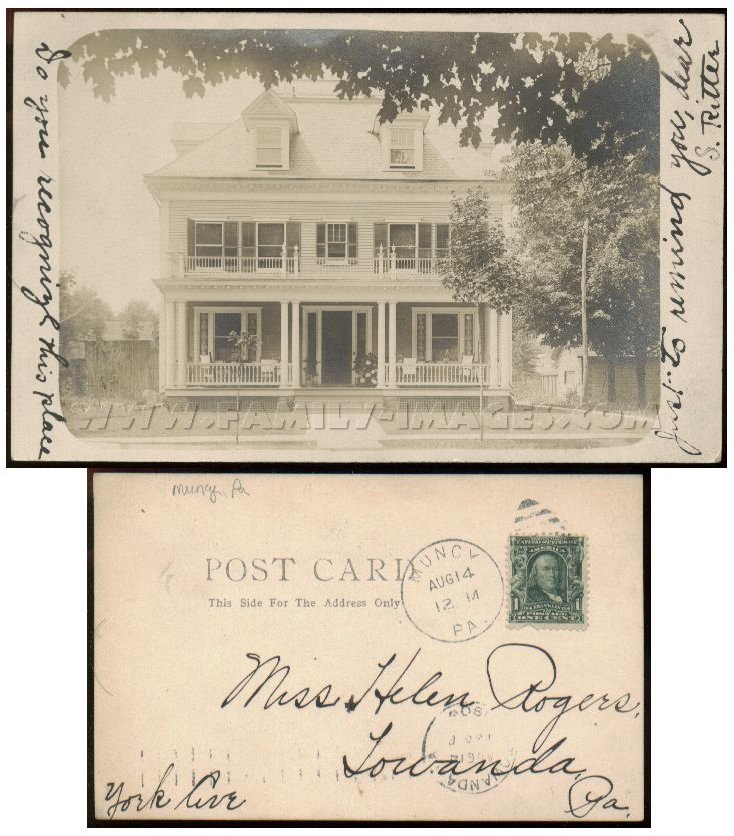 Do you recognize this place
Just to remind you, dear
S. Ritter
WWW.FAMILY-IMAGES.COM
Muncy Pa
POST CARD
This Side For The Address Only
MUNCY
AUG 14
12 M
PA.
1
POSTAGE
ONE CENT
Miss Helen Rogers,
Towanda,
Pa.
York Ave